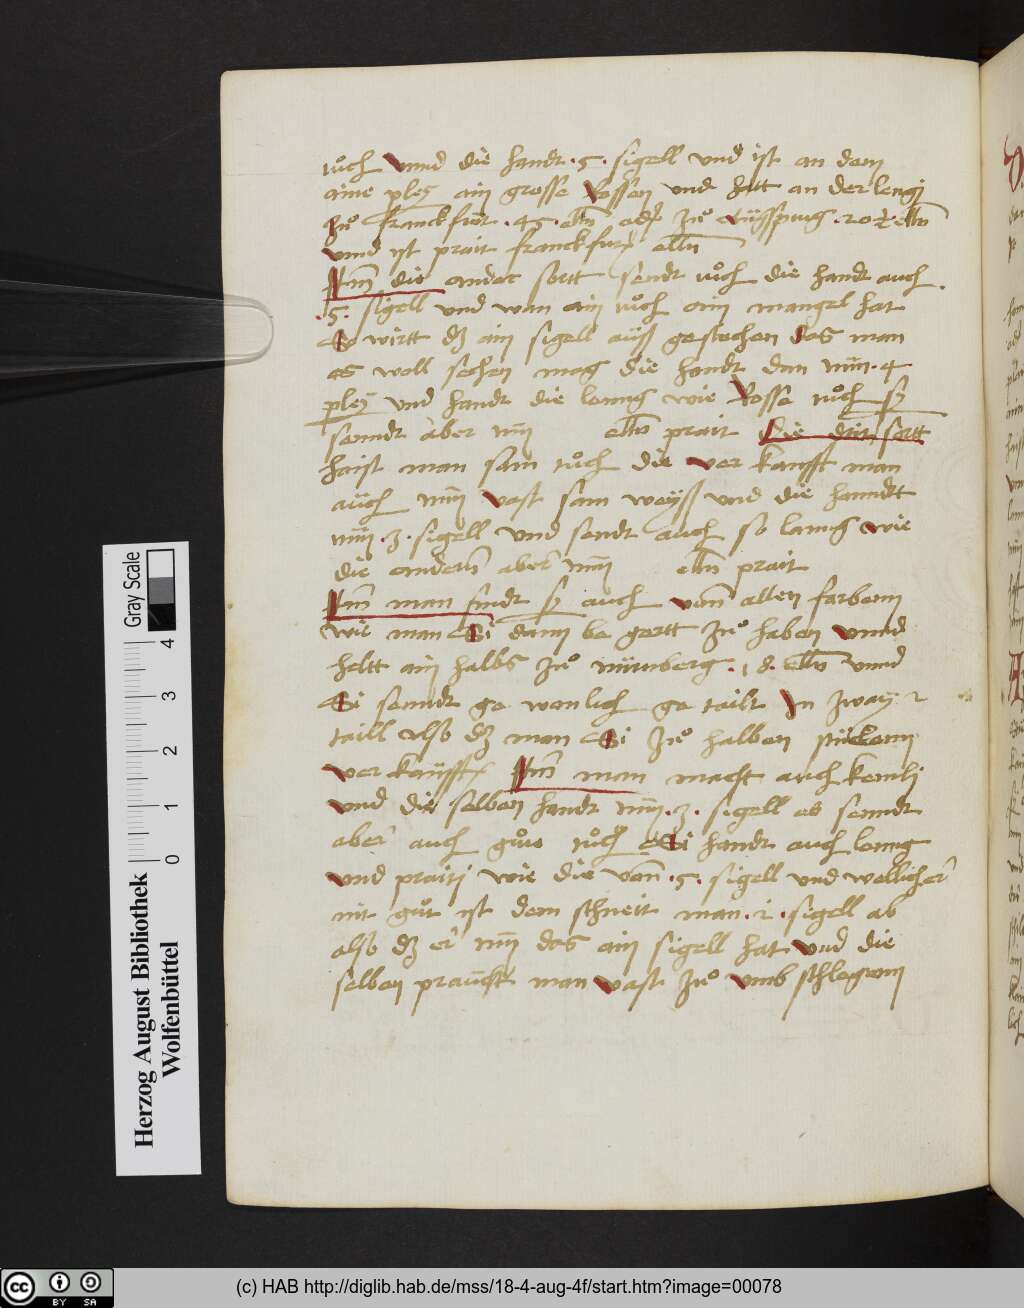 tuͦch vnnd die handt · 5 · sigell vnd ist an dem
aine pleẏ ain grosse Rossen vnd hatt an der lengi
zuͦ franckfurt · 45 · elln zuͦ Augspurg · 
vnnd ist prait franckfurt elln
Item die ander sortt sendt tuͦch die handt auch
· 5 · sigell vnd wan ain tuͦch ain mangel hat
So wirtt dz ain sigell auß gestochen das man
es woll sechen mag die handt dan nun · 4
pleẏ vnd handt die leng wie Rosse tuͦch sẏ
senndt aber nun elln prait Die drit sortt
haist man sam tuͦch die ver kaufft man
auch nun vast sam weyß vnd die hanndt
nun · 3 · sigell vnd sendt auch so lanng wie
die andern aber nun elln prait
Item man findt sẏ auch vonn allen farbenn
wie man Si dann be gertt zuͦ haben vnnd
heltt ain halbs zuͦ nürmberg · 18 · elln vnnd
Si senndt ge wonlich ge tailt In zwaẏ
taill also dz man Si zuͦ halben stuckenn
ver kaufft Item man macht auch kemli
vnd die selben handt nun · 3 · sigell es senndt
aber auch guͦte tuͦch Si handt auch lanng
vnd praiti wie die vonn · 5 · sigell vnd wellicher
nit guͦt ist dem schneit man · 2 · sigell ab
also dz er nun das ain sigell hat vnd die
selben praucht man vast zuͦ vmb schlegenn
Herzog August Bibliothek
Wolfenbüttel
Gray Scale
0 1 2 3 4
(c) HAB http://diglib.hab.de/mss/18-4-aug-4f/start.htm?image=00078
CC BY SA